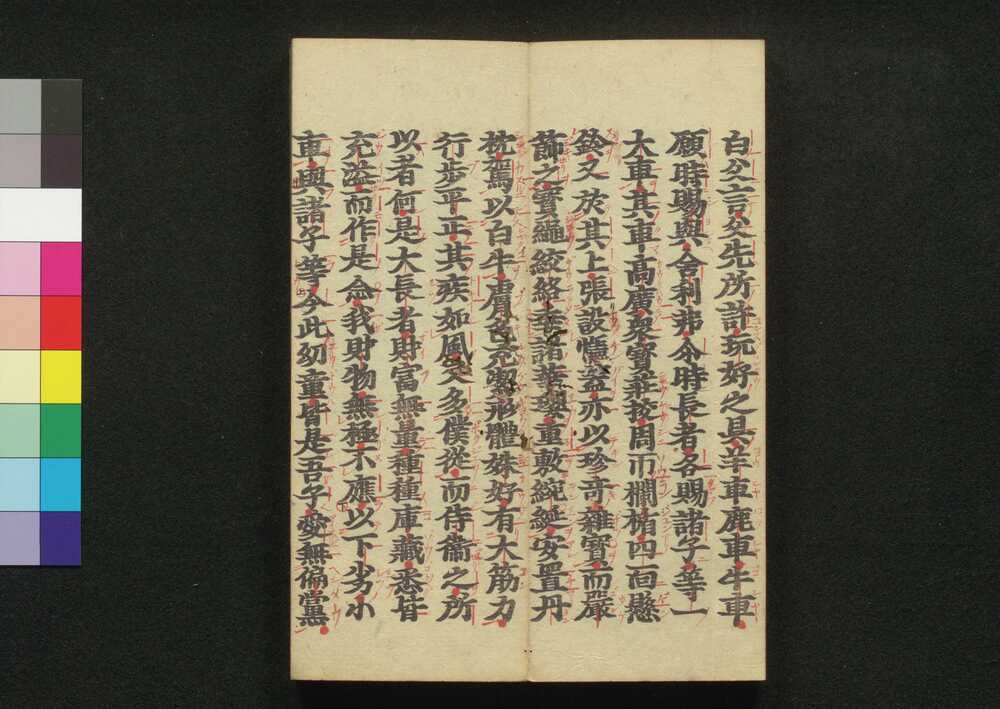 白父言父先所許玩好之具羊車鹿車牛車
願時賜與舍利弗尒時長者各賜諸子等一
大車其車高廣衆寶莊挍周帀欄楯四面懸
鈴又於其上張設幰盖亦以珍奇雜寶而嚴
飾之寶繩絞絡垂諸華瓔重敷綩綖安置丹
枕駕以白牛膚色充潔形體姝好有大筋力
行步平正其疾如風又多僕從而侍衞之所
以者何是大長者財富無量種種庫藏悉皆
充溢而作是念我財物無極不應以下劣小
車與諸子等今此幼童皆是吾子愛無偏黨